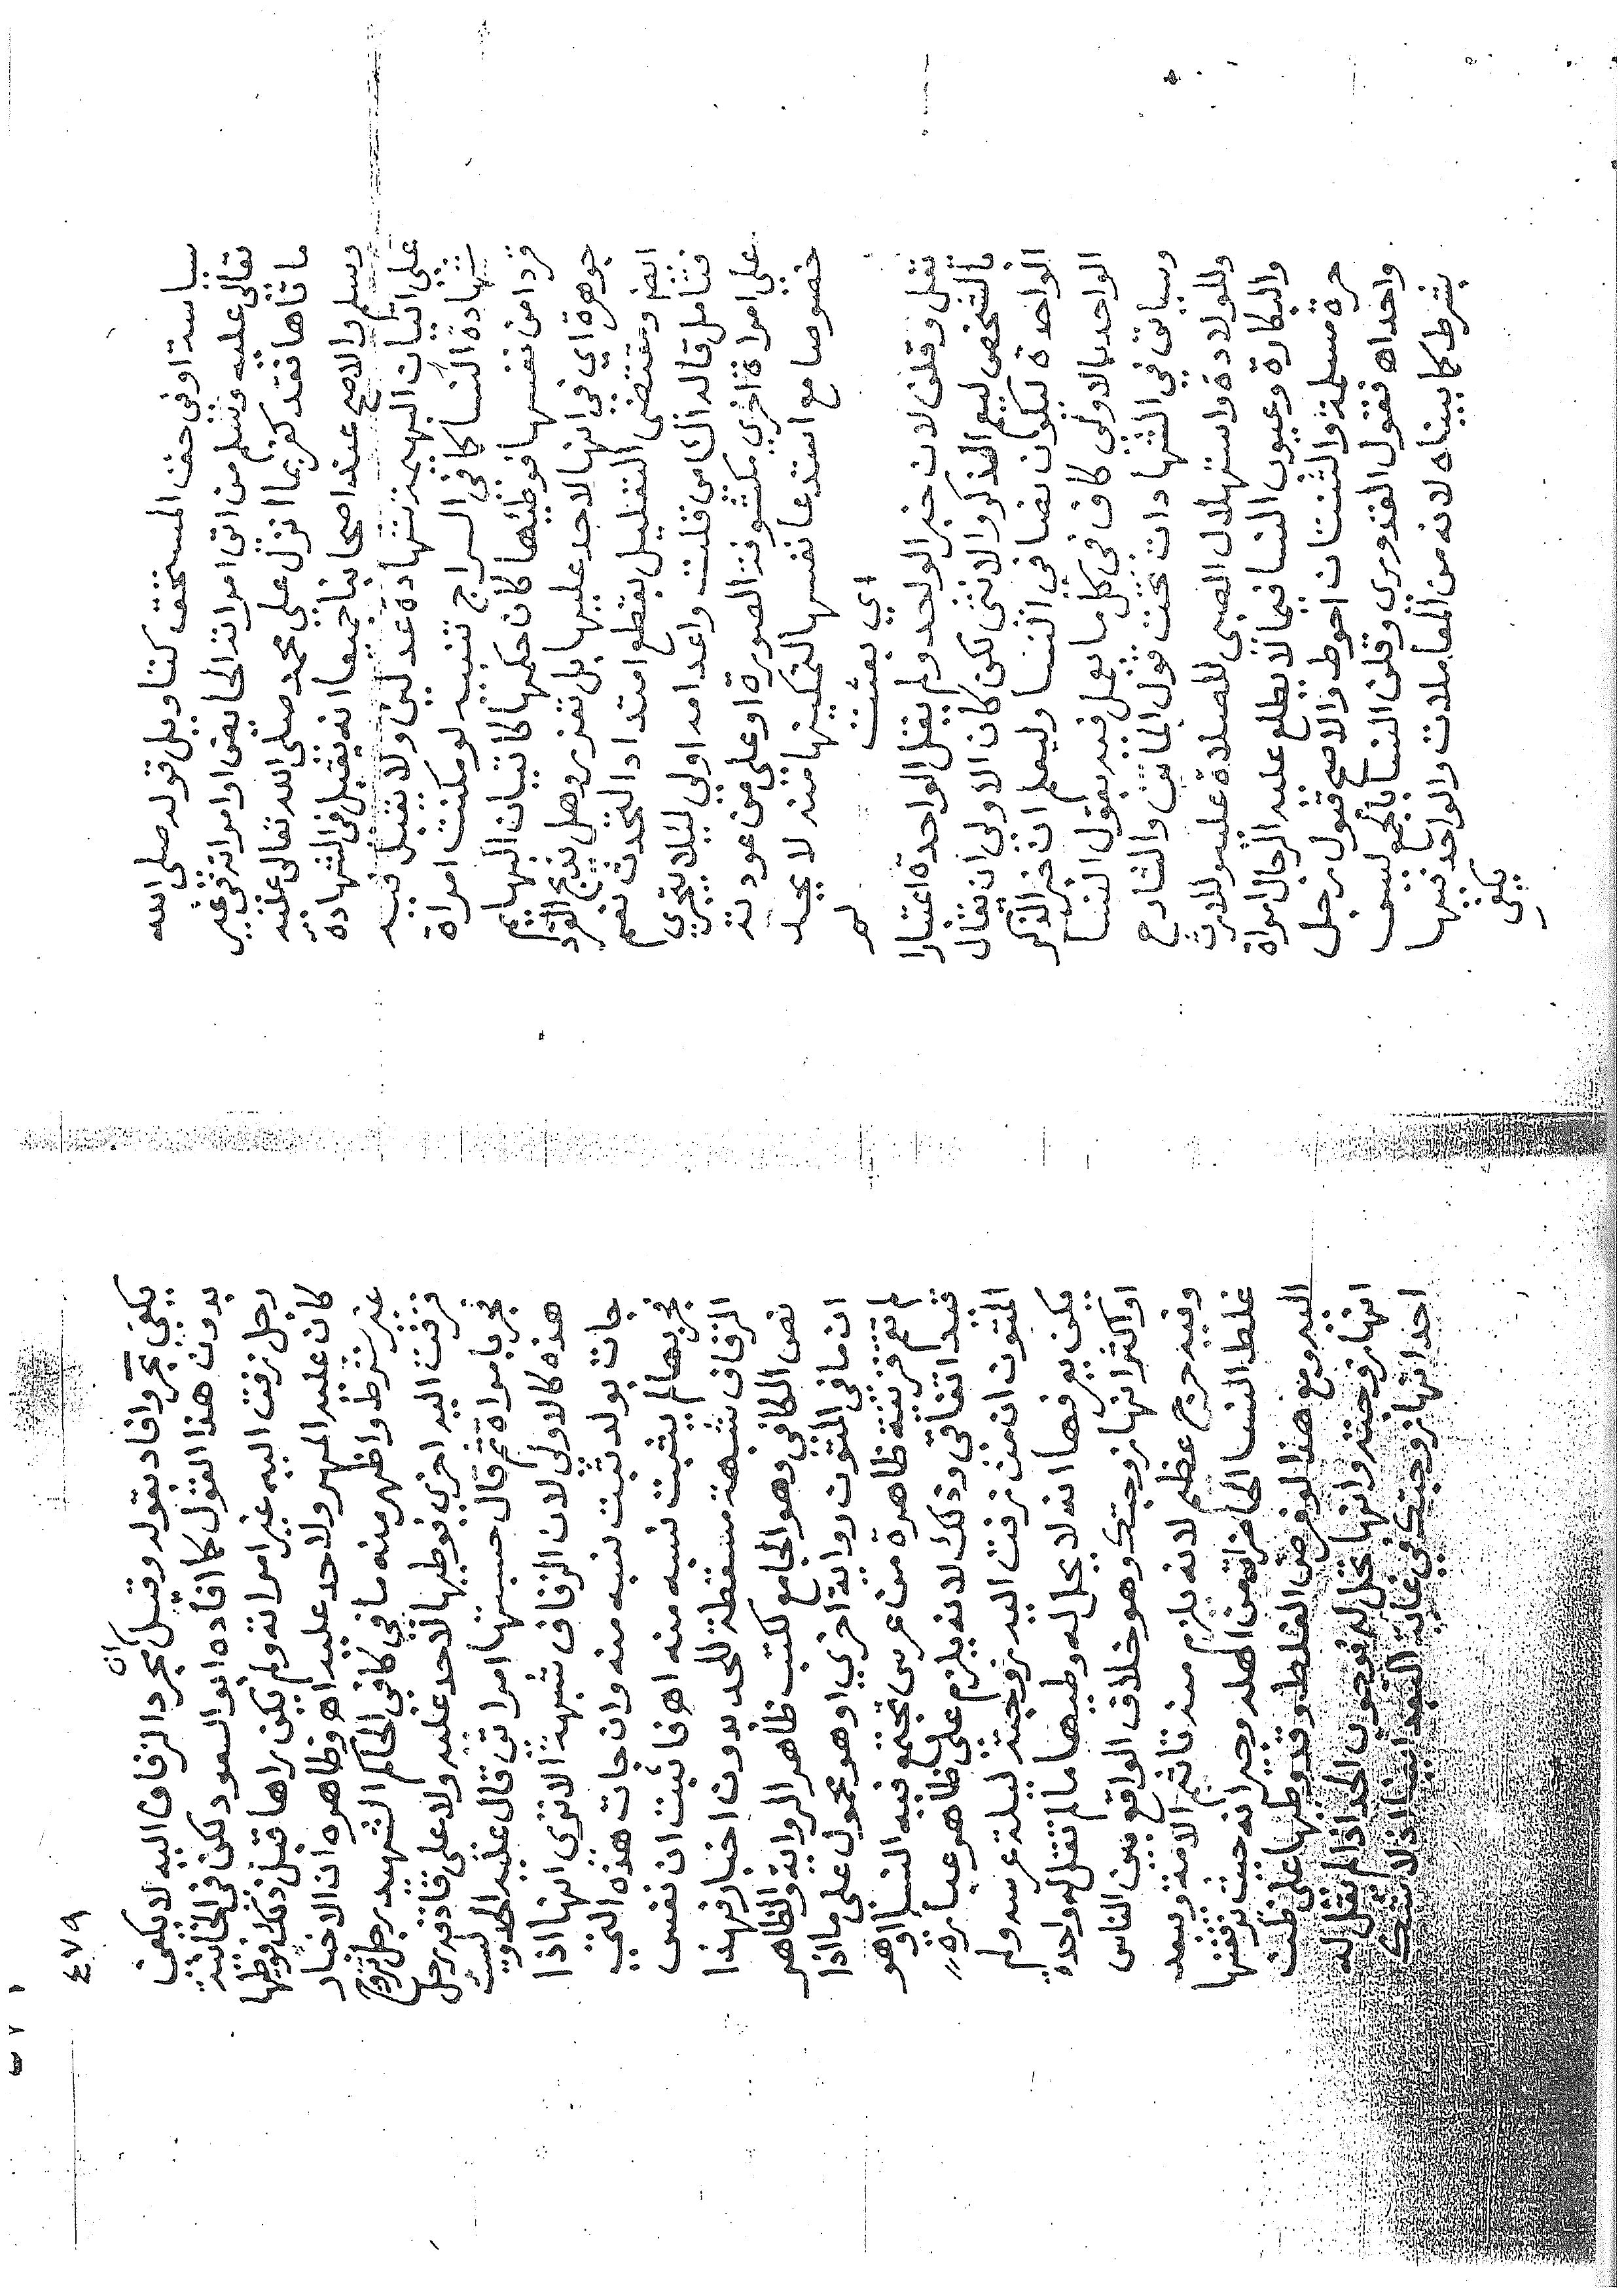 سياسة اوفى حق المستحق كتاويل قوله صلى الله
تعالى عليه وسلم من اتى امراته الحائض او امراته في غير
ماتاها فقد كفر بما انزل على محمد صلى الله تعالى عليه
وسلم والاصح عند اصحابنا جميعا انه يقبل في الشهادة
على اتيان البهيمة شهادة عدلين ولا يقبل فيه
شهادة النسا كما في السراج تنبيه لو مكنت امراة
قردا من نفسها فوطئها كان حكمها كاتيان البهايم
جوهرة اي في انها لا حد عليها بل تعزر وهل يذبح القرد
انعم ومقتضى التعليل بقطع امتداد التحدث نعم
فتامل قاله الشامى قلت واعدامه اولى ليلا يتجرى
على امراة اخرى مكشوفة الصورة او على من عودته
خصوصا مع استدعا نفسها لتمكينها منه لا يحد
اي بعثت
تقل وقلن لان خبر الواحد ولم يقل الواحدة اعتبارا
بالشخص ليعم الذكر والانثى لكن كان الاولى ان يقال
الواحدة ليكون نصا في النسا وليعلم ان خبر الذكر
الواحد بالاولى كاف في كل ما يعمل فيه بقول النسا
وسياتي في الشهادات تحت قول الماتن والشارح
وللولادة ولاستهلال الصبى للصلاة عليه وللارث
والبكارة وعيوب النسا فيما لا يطلع عليه الرجال امراة
حرة مسلمة والثنتان احوط والاصح قبول رجل
واحد اه فقول القدورى وقلن النسا بالجمع ليس
بشرط كما بيناه لانه من المعاملات والواحد فيها
يكفي
٤٧٩
يكفي بحر وافاد بقوله وقيل ان مجرد الزفاف اليه لا يكفى
بدون هذا القول كما افاده ابو السعود لكن في الخانية
رجل زفت اليه غير امراته ولم يكن راها قبل ذلك فوطئها
كان عليه المهر ولا حد عليه اه وظاهره ان الاخبار
غير شرط واظهر منه ما في كافي الحاكم الشهيد رجل تزوج
فزفت اليه اخرى فوطيها لا حد عليه ولا على قاذفه رجل
فجر بامراة ثم قال حسبتها امراتى قال عليه الحد وليست
هذه كالاولى لان الزفاف شبهة الا ترى انها اذا
جات بولد ثبت نسبه منه وان جات هذه التي
فجر بها لم يثبت نسبه منه اه فاثبت ان نفس
الزفاف شبهة مسقطة للحد بدون اخبار فهذا
نص الكافي وهو الجامع لكتب ظاهر الرواية والظاهر
ان ما في المتون رواية اخرى او هو محمول على ما اذا
لم تقم قرينة ظاهرة من عرس تجتمع فيه النسا او هو
قيد اتفاقى وذلك لانه يلزم على ظاهر عبارة
المتون انه من زفت اليه زوجته ليلة عرسه ولم
يكن يعرفها انه لا يحل له وطيها ما لم تقل له واحدة
او اكثر انها زوجتك وهو خلاف الواقع بين الناس
وفيه حرج عظيم لانه يلزم منه تاثيم الامة ويبعد
غلط النسا الحاضرات من اهله وجيرانه حيث توقفها
اليه ومع هذا لو فرض الغلط وقد وطيها على ظن
انها زوجته وانها تحل له فوجوب الحد اذا لم تقل له
احد انها زوجتك في غاية البعد ايضا اذ لا شك